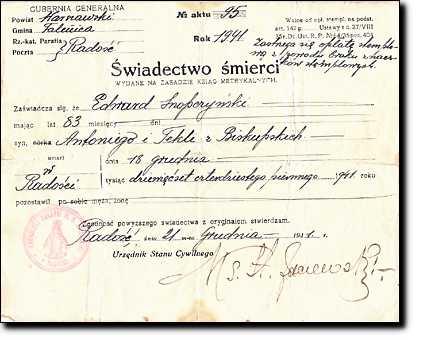 GUBERNIA GENERALNA
Powiat Warszawski
Gmina Falenica
Rz.-kat. Parafia
Poczta } Radość
№ aktu 95
Rok 1941
Wolne od opł. stempl. na podst.
art. 142 g. Ustawy z d. 27/VIII
Świadectwo śmierci
WYDANE NA ZASADZIE KSIĄG METRYKALNYCH.
Zaświadcza się, że Edward Snopczyński
mając lat 83 miesięcy dni
syn, córka Antoniego i Tekli z Biskupskich
zmarł dnia 18 grudnia
w Radości tysiąc dziewięćset czterdziestego pierwszego 1941 roku
pozostawił po sobie męża, żonę
Zgodność powyższego świadectwa z oryginałem stwierdzam.
Radość, dnia 21 m-ca Grudnia 1941 r.
Urzędnik Stanu Cywilnego